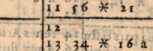 11 56 * 21
12
13 34 * 162